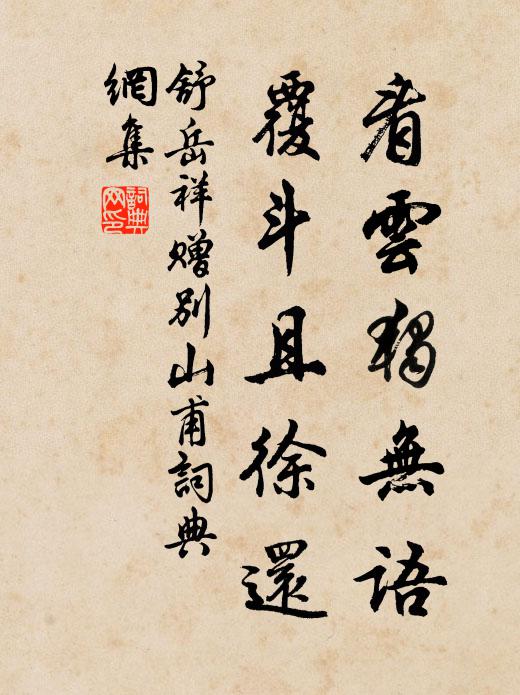 看雲獨無語
覆斗且徐還
舒岳祥贈别山甫詞典
網集
詞典
网印